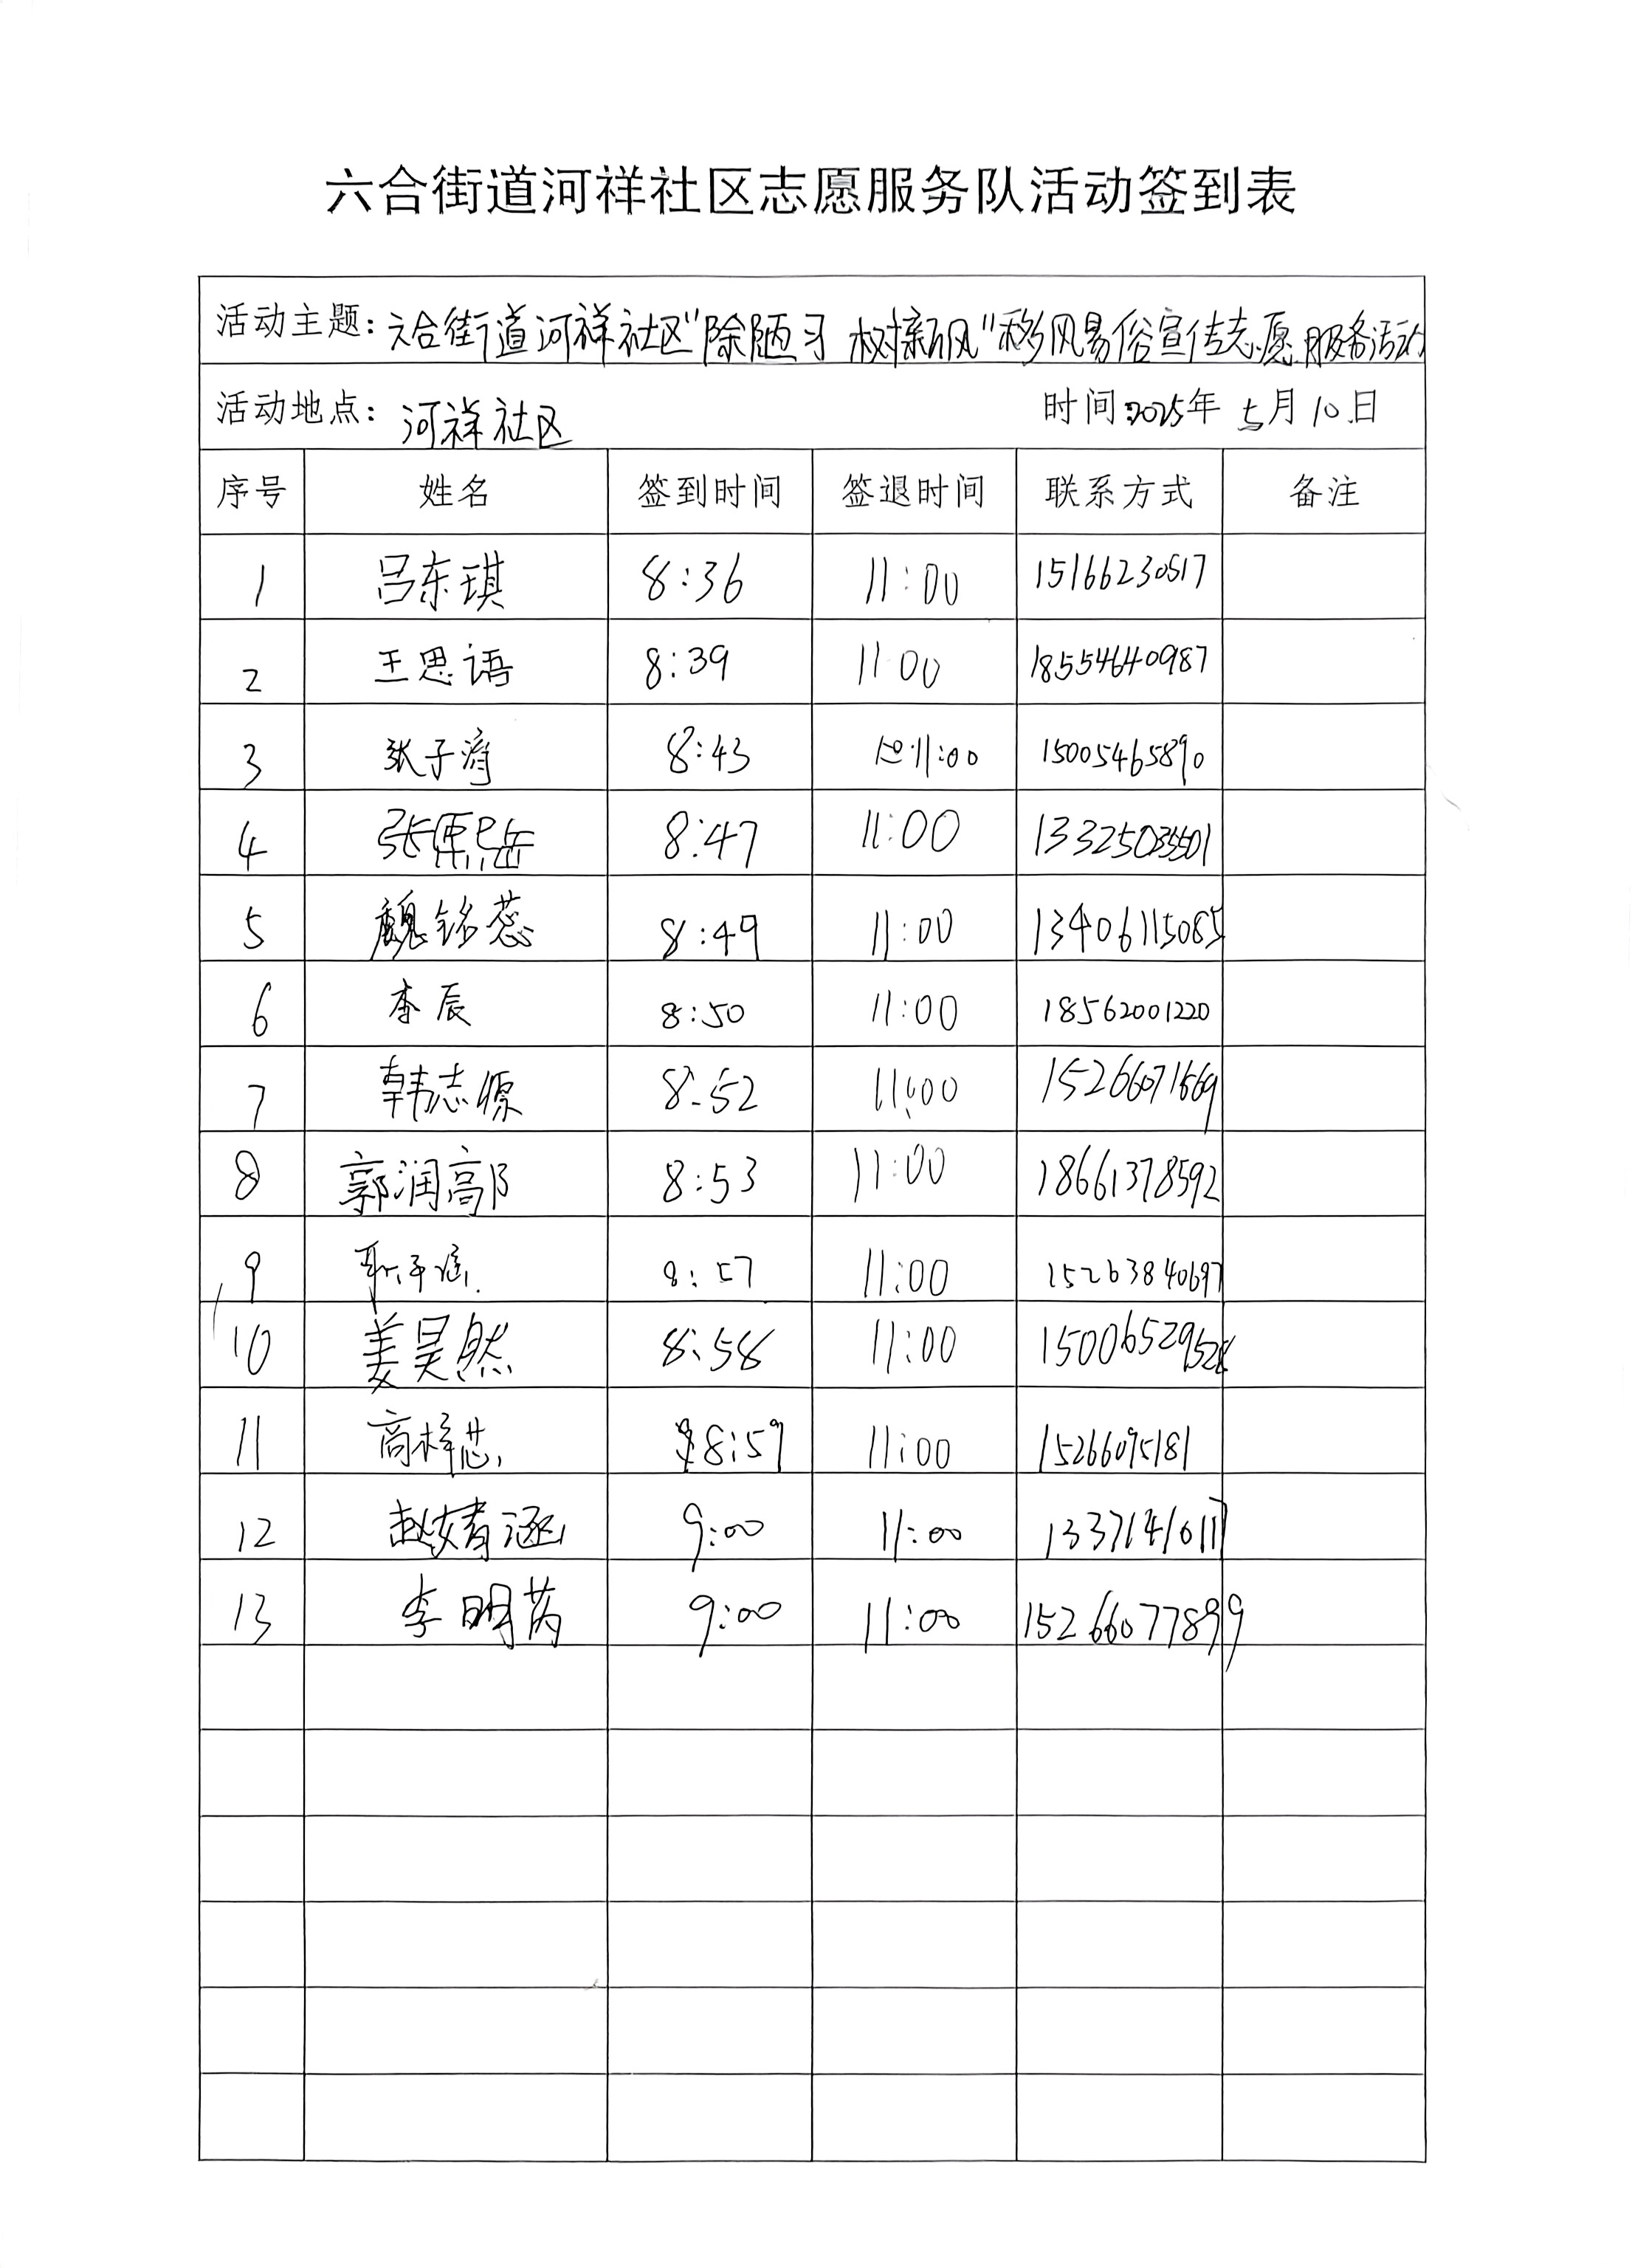 六合街道河祥社区志愿服务队活动签到表
活动主题：六合街道河祥社区"除陋习 树新风"移风易俗宣传志愿服务活动
活动地点：河祥社区 时间：2025年 5月 10日
序号 姓名 签到时间 签退时间 联系方式 备注
1 吕东琪 8:36 11:00 15166230517
2 王思语 8:39 11:00 18554640987
3 张子 8:43 11:00 15005465890
4 张熙岳 8:47 11:00
5 魏铭蕊 8:49 11:00 13406115085
6 李辰 8:50 11:00 18562001220
7 韩志源 8:52 11:00 15266071669
8 郭润高 8:53 11:00 18661378592
9 8:57 11:00 15263840697
10 姜昊然 8:58 11:00 15006529528
11 高梓芯 8:59 11:00 15266095181
12 赵婧涵 9:00 11:00
13 李明芮 9:00 11:00 15266077899